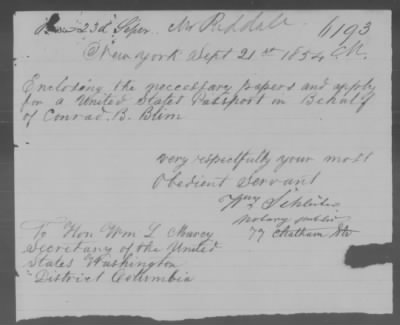 23d Sepr. Mr Riddall. 6193
New York Sept 21st 1854
Enclosing the necessary papers and apply
for a United States Passport on Behalf
of Conrad. B. Blim
very respectfully your most
Obedient Servant
Wm Schlüter
notary public
77 Chatham Str
To Hon Wm L Marcy
Secretary of the United
States Washington
District Columbia